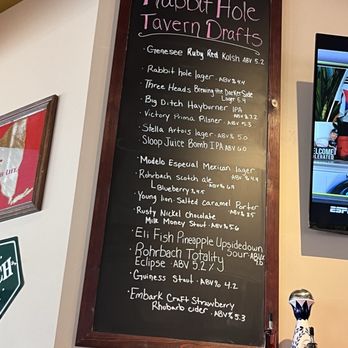 Rabbit Hole
Tavern Drafts
· Genesee Ruby Red Kolsh ABV 5.2
· Rabbit hole lager · ABV % 4.4
· Three Heads Brewing the Darker Side
Lager 5.4
· Big Ditch Hayburner IPA
ABV % 7.2
· Victory Prima Pilsner
ABV % 5.3
· Stella Artois lager ABV % 5.0
· Sloop Juice Bomb IPA ABV 6.0
· Modelo Especial Mexican lager
ABV % 4.4
· Rohrbach Scotch ale
ABV % 6.9
· Young lion Salted Caramel Porter
· Rusty Nickel Chocolate
Milk Money Stout · ABV % 5.6
· Eli Fish Pineapple Upsidedown
Sour
· Rohrbach Totality
Eclipse · ABV 5.2 %
· Guiness Stout · ABV % 4.2
· Embark Craft Strawberry
Rhubarb cider · ABV % 5.3
WELCOME
ESPN